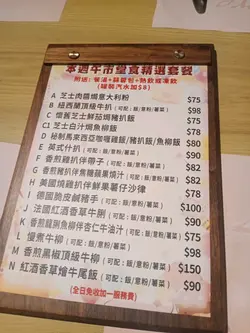 本週午市堂食精選套餐
附送：餐湯+蒜蓉包+熱飲或凍飲
(罐裝汽水加$8)
A 芝士肉醬焗意大利粉 $75
B 紐西蘭頂級牛扒 (可配：飯/意粉/薯菜) $98
C 懷舊芝士鮮茄焗豬扒飯 $75
C1 芝士白汁焗魚柳飯 $75
D 秘制馬來西亞咖喱雞飯/豬扒飯/魚柳飯 $80
E 英式什扒 (可配：飯/意粉/薯菜) $90
F 香煎雞扒伴帶子 (可配：飯/意粉/薯菜)
G 香煎雞扒伴 (可配：飯/意粉/薯菜) $82
H 美國燒雞扒伴鮮果薯仔沙律 $78
I 德國脆皮鹹豬手 (可配：飯/意粉/薯菜) $100
J 法國紅酒香草牛脷 (可配：飯/意粉/薯菜) $90
K 香煎龍脷魚柳伴杏仁牛油汁 (可配：飯/意粉/薯菜)
L 慢煮牛柳 (可配：飯/意粉/薯菜) $98
M 香煎黑椒頂級牛柳 (可配：飯/意粉/薯菜) $150
N 紅酒香草燴牛尾飯 (可配：飯/意粉/薯菜) $90
(全日免收加一服務費)